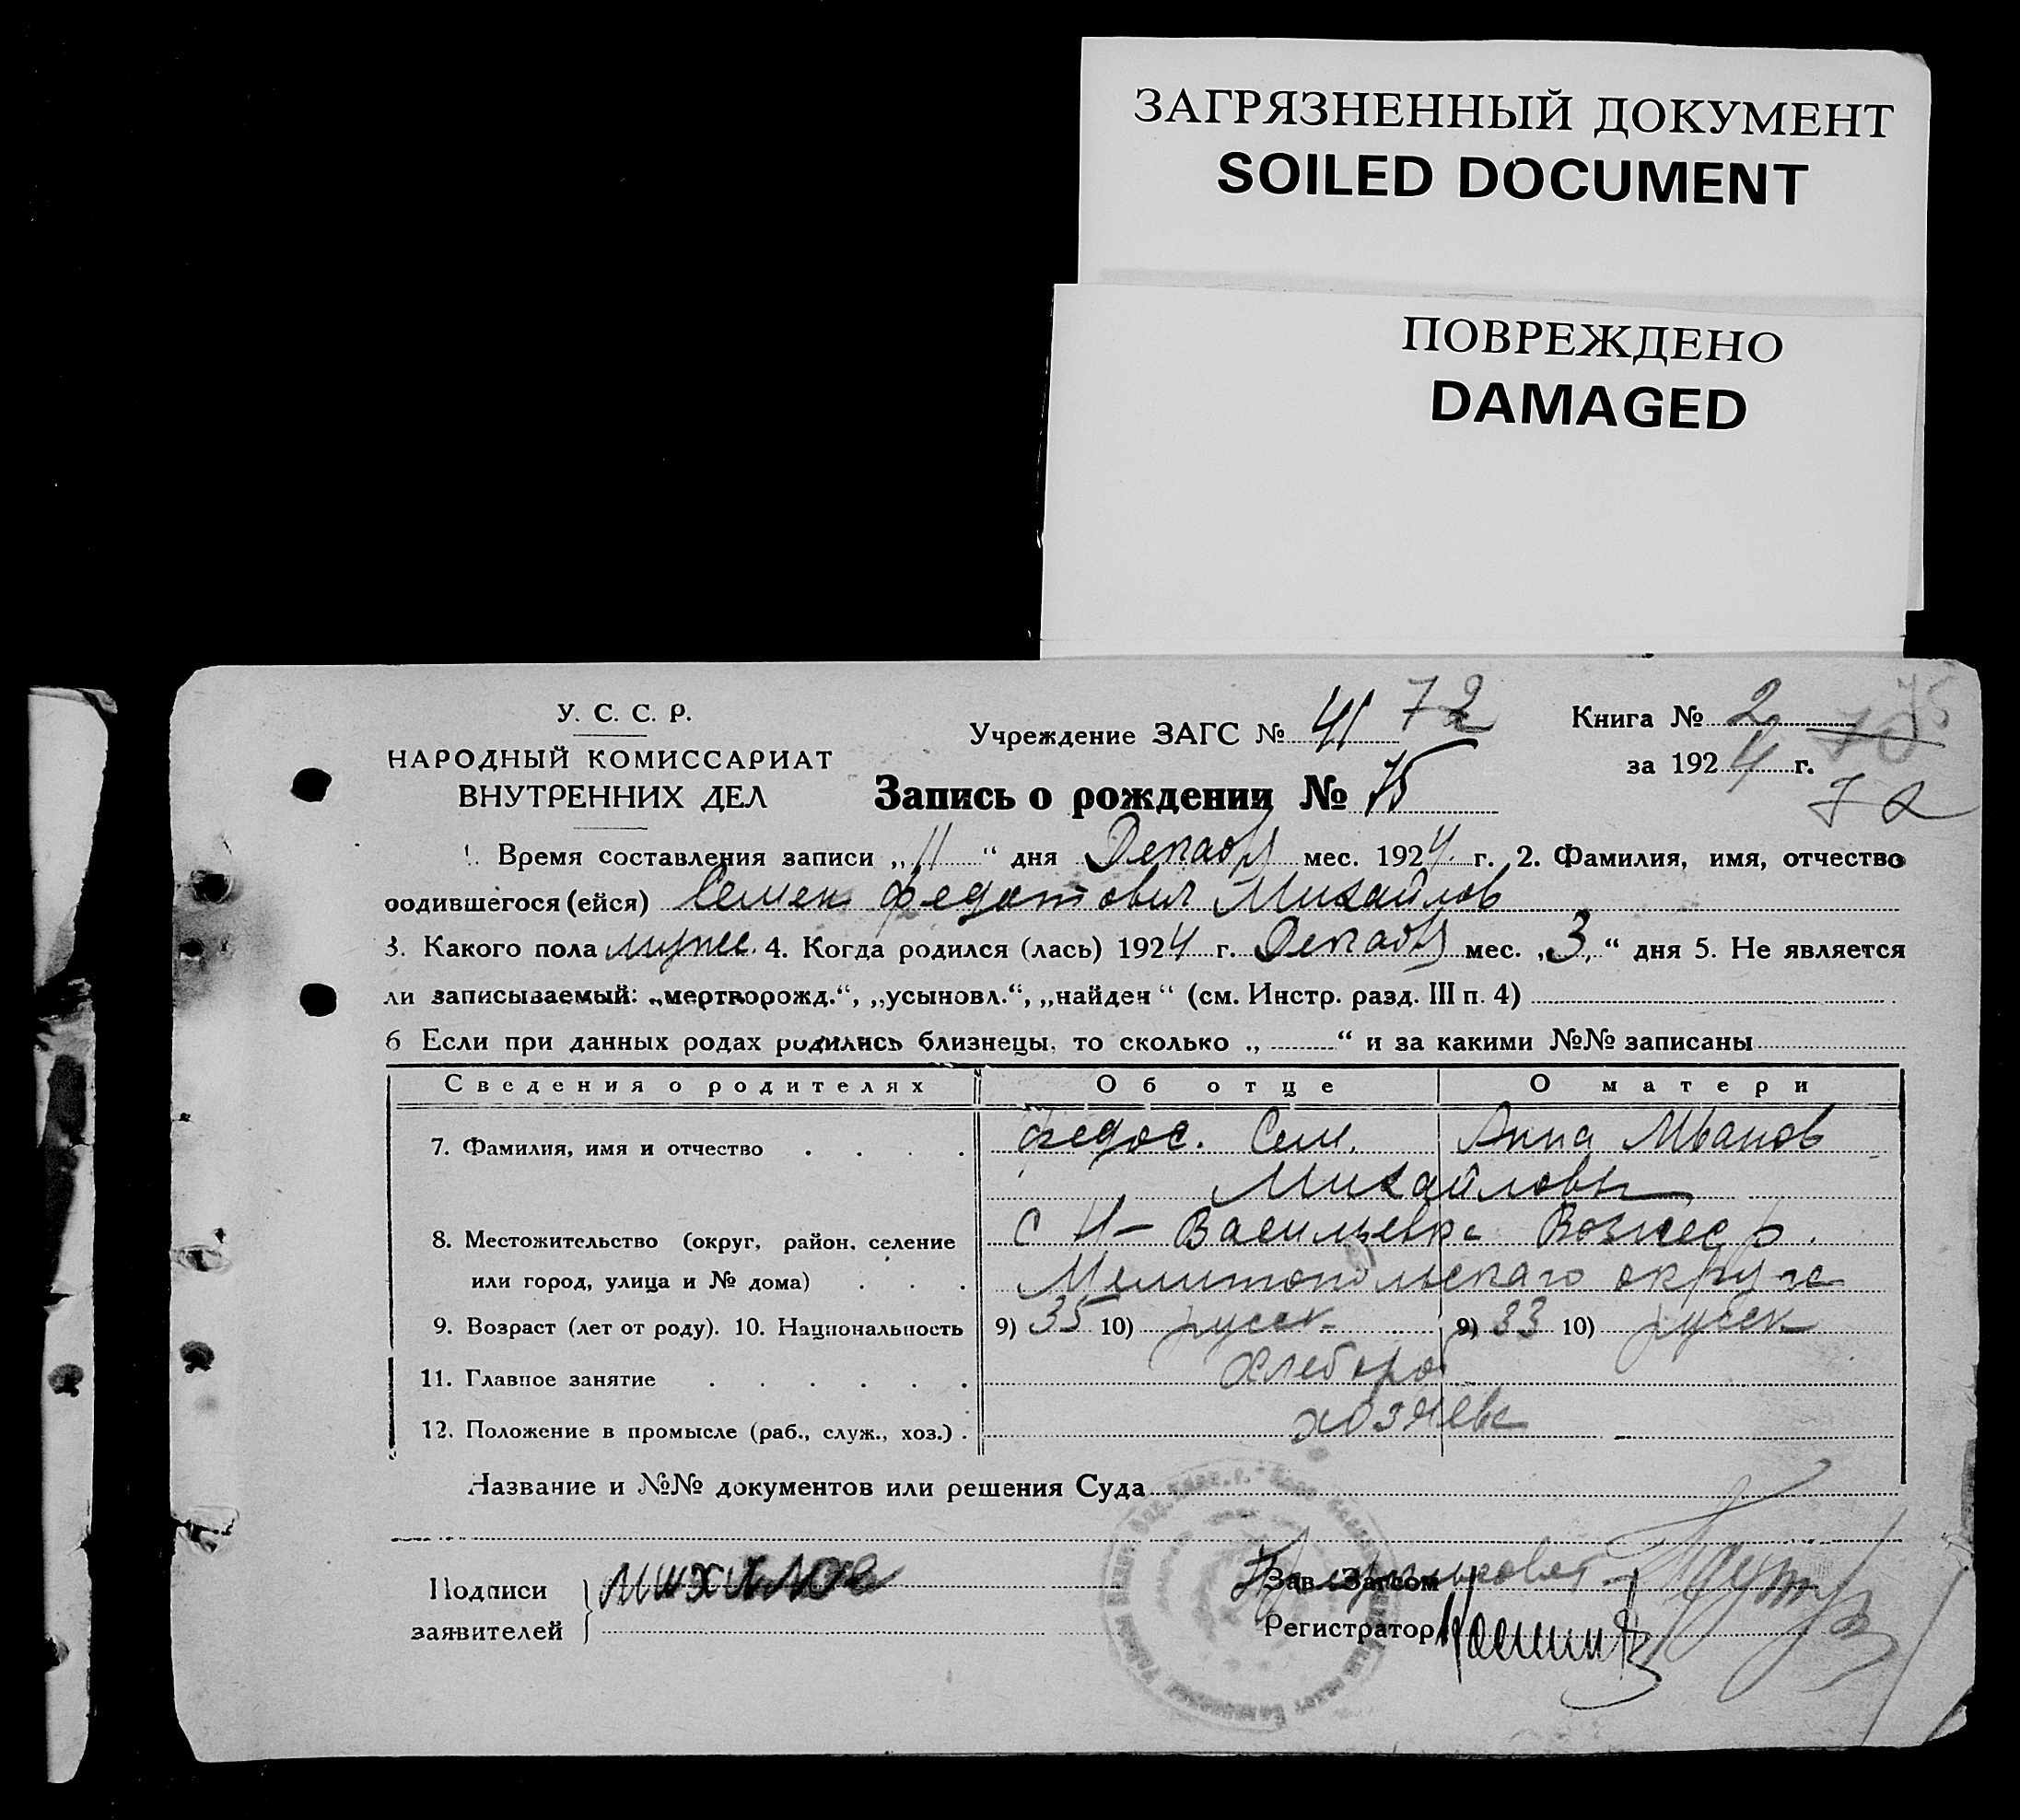 ЗАГРЯЗНЕННЫЙ ДОКУМЕНТ
SOILED DOCUMENT
ПОВРЕЖДЕНО
DAMAGED
У. С. С. Р.
НАРОДНЫЙ КОМИССАРИАТ
ВНУТРЕННИХ ДЕЛ
Учреждение ЗАГС № 41 72
Книга № 2 75
70
за 1924 г.
72
Запись о рождении № 75
1. Время составления записи „11“ дня Декабр мес. 1924 г. 2. Фамилия, имя, отчество
родившегося (ейся) Семен Федотович Михайлов
3. Какого пола мужес. 4. Когда родился (лась) 1924 г. Декабр мес. „3“ дня 5. Не является
ли записываемый: „мертворожд.“, „усыновл.“, „найден“ (см. Инстр. разд. III п. 4)
6 Если при данных родах родились близнецы, то сколько „ “ и за какими №№ записаны
Сведения о родителях Об отце О матери
7. Фамилия, имя и отчество Федос. Сем. Анна Иванов
Михайловы
8. Местожительство (округ, район, селение С Н-Васильевка Вознес р.
или город, улица и № дома) Мелитопольскаго округа
9. Возраст (лет от роду). 10. Национальность 9) 35 10) русск 9) 33 10) русск
11. Главное занятие хлебороб
12. Положение в промысле (раб., служ., хоз.) хозяева
Название и №№ документов или решения Суда
Подписи
заявителей
михайлов
Зав. Загсом
Регистратор